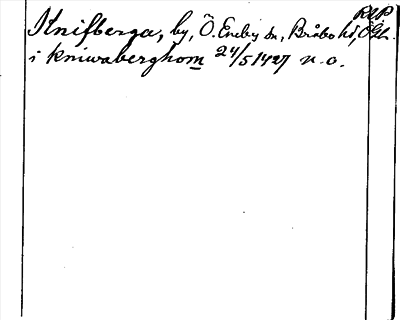 RAP
Knifberga, by, Ö. Eneby sn, Bråbo hd, ÖGtl.
i kniwaberghom 24/5 1427 n. o.